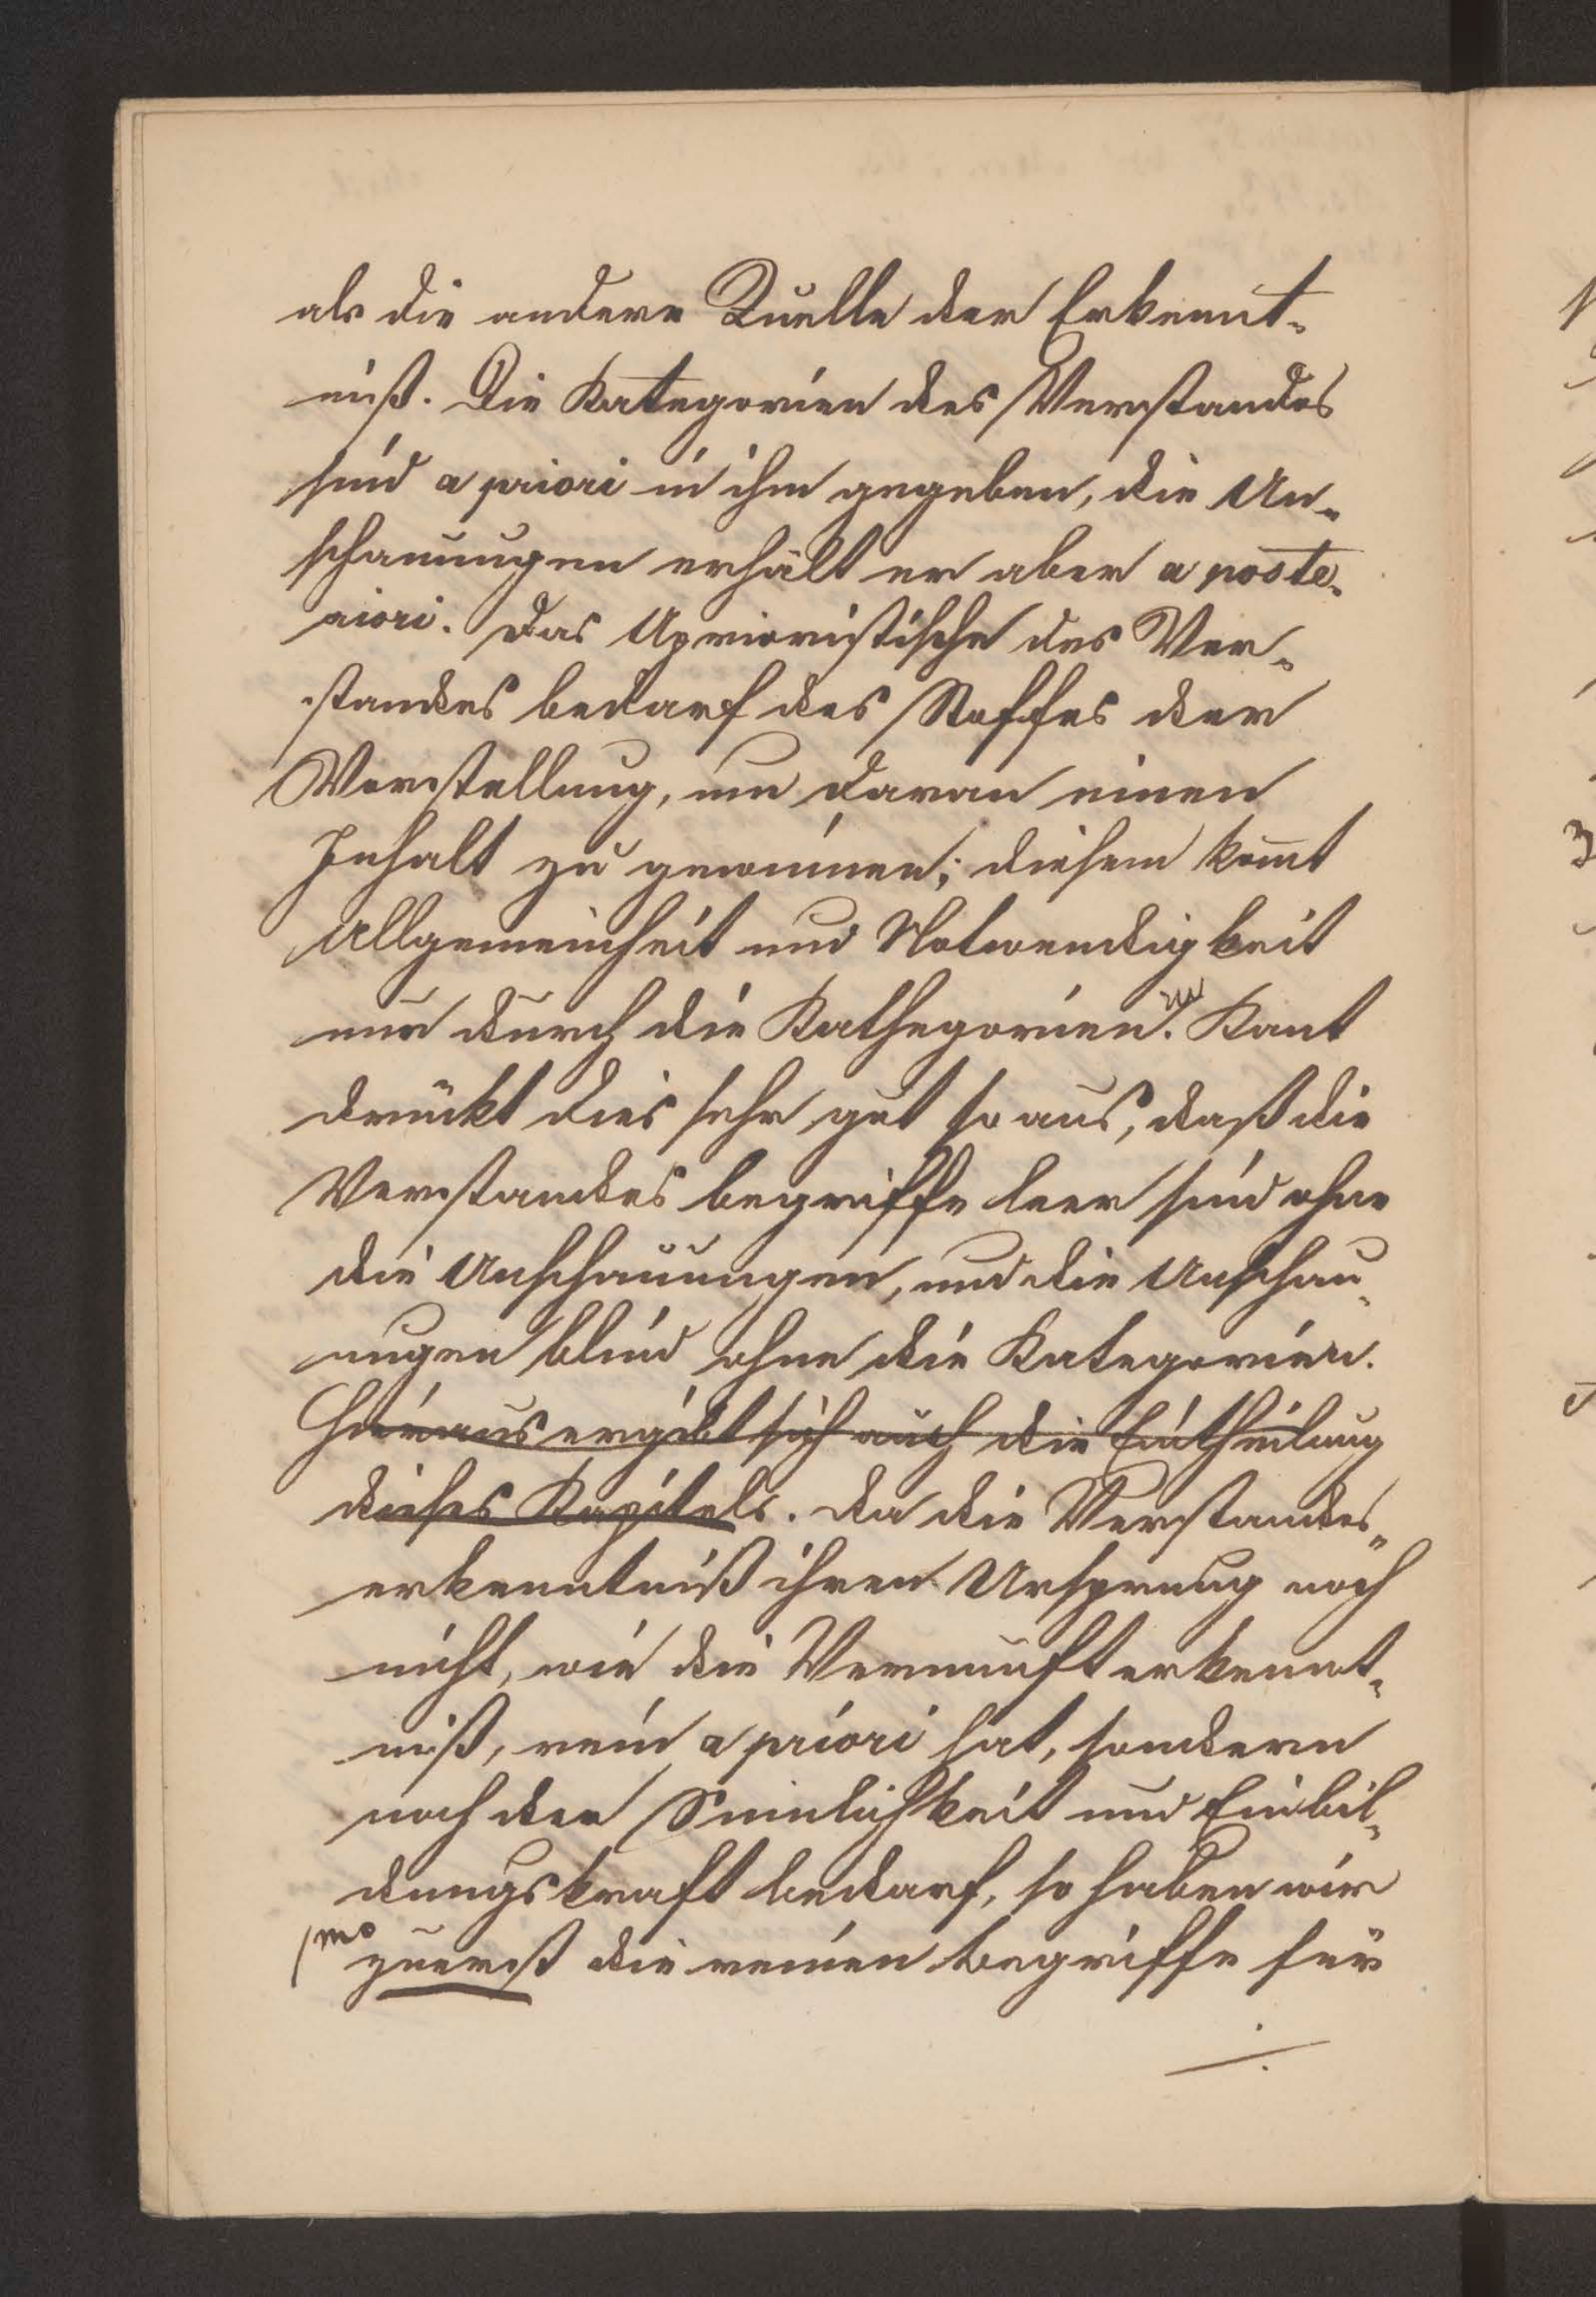 als die andere Quelle der Erkennt-
niß. Die Kategorien des Verstandes
sind a priori in ihm gegeben, die An-
schauungen erhält er aber a poste-
riori. Das Aprioristische des Ver-
standes bedarf des Stoffes der
Vorstellung, um daran einen
Inhalt zu gewinnen; diesem kommt
Allgemeinheit und Notwendigkeit
nur durch die Kathegorien. Kant
drückt dies sehr gut so aus, daß die
Verstandesbegriffe leer sind ohne
die Anschauungen, und die Anschau-
ungen blind ohne die Kategorien.
Hieraus ergibt sich auch die Eintheilung
dieses Kapitels. Da die Verstandes-
erkenntniß ihren Ursprung noch
nicht, wie die Vernunfterkennt-
niß, rein a priori hat, sondern
noch der Sinnlichkeit und Einbil-
dungskraft bedarf, so haben wir
1mo zuerst die reinen Begriffe für